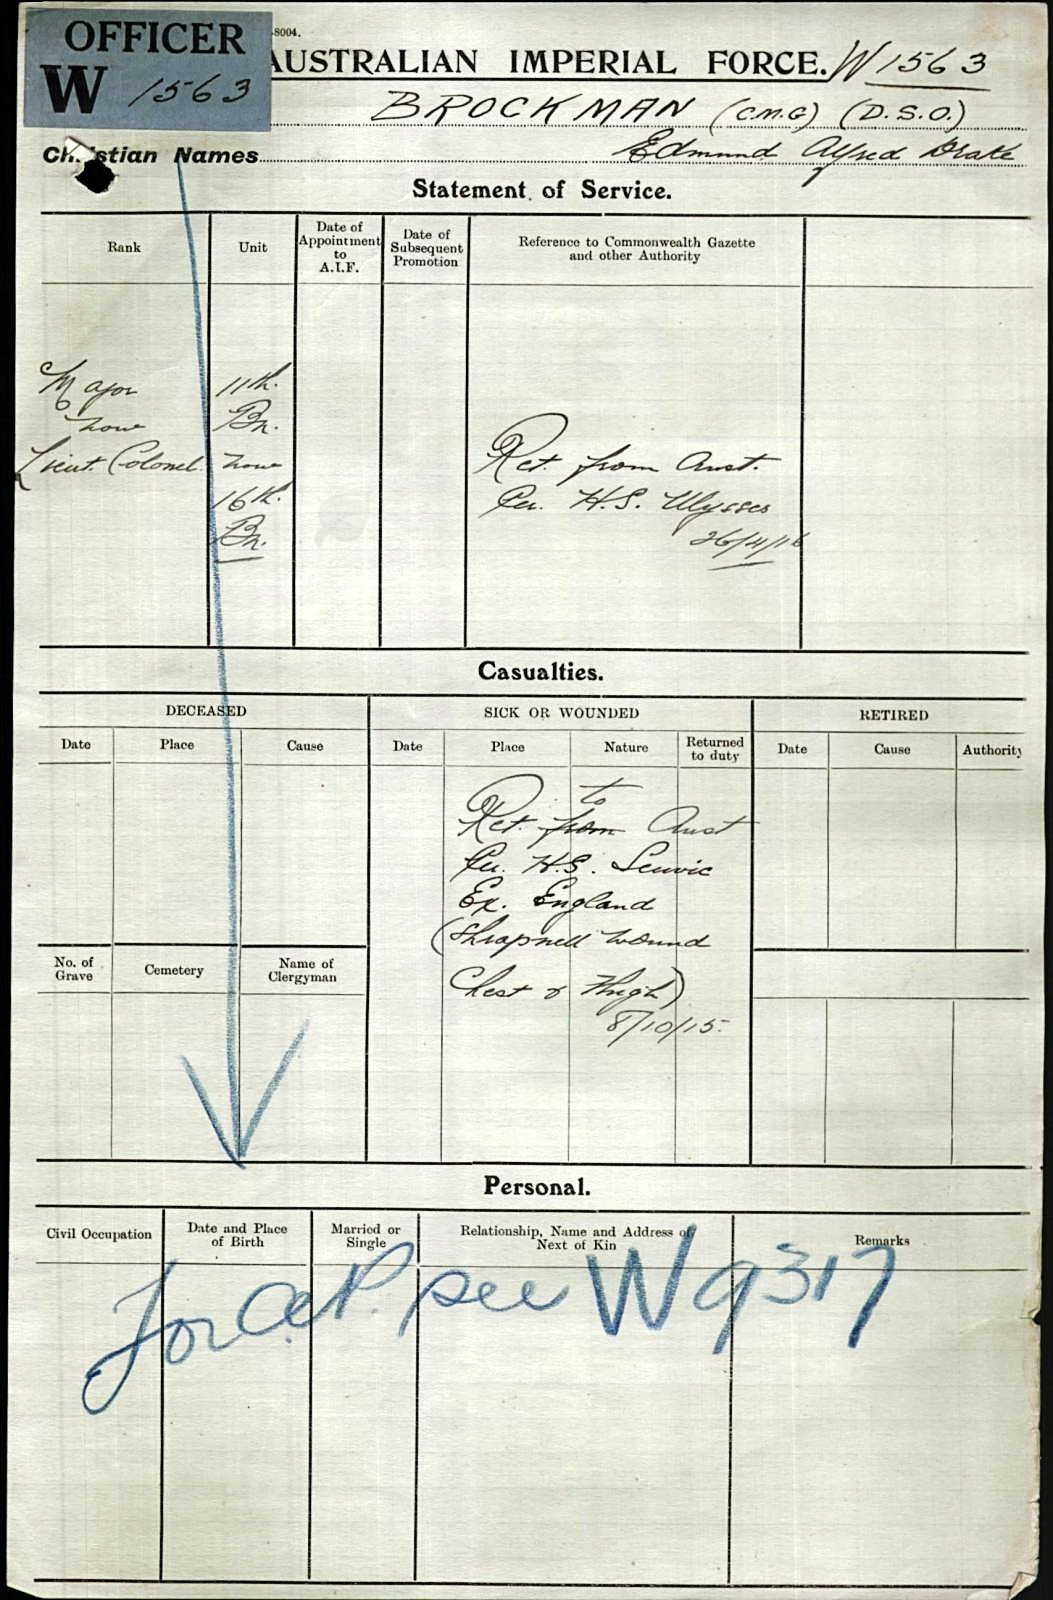 OFFICER
W 1563
8004.
AUSTRALIAN IMPERIAL FORCE. W1563
BROCKMAN (C.M.G) (D.S.O.)
Christian Names Edmund Alfred Drake
Statement of Service.
Rank
Unit
Date of Appointment to A.I.F.
Date of Subsequent Promotion
Reference to Commonwealth Gazette and other Authority
Major
now
Lieut. Colonel
11th.
Bn.
now
16th.
Bn.
Ret. from Aust.
Per. H.S. Ulysses
26/4/16
Casualties.
DECEASED
SICK OR WOUNDED
RETIRED
Date
Place
Cause
Date
Place
Nature
Returned to duty
Date
Cause
Authority
to
Ret. from Aust
Per. H.S.
Ex. England
(Shrapnell wound
Chest & Thigh)
8/10/15.
No. of Grave
Cemetery
Name of Clergyman
Personal.
Civil Occupation
Date and Place of Birth
Married or Single
Relationship, Name and Address of Next of Kin
Remarks
For A.P. see W9317